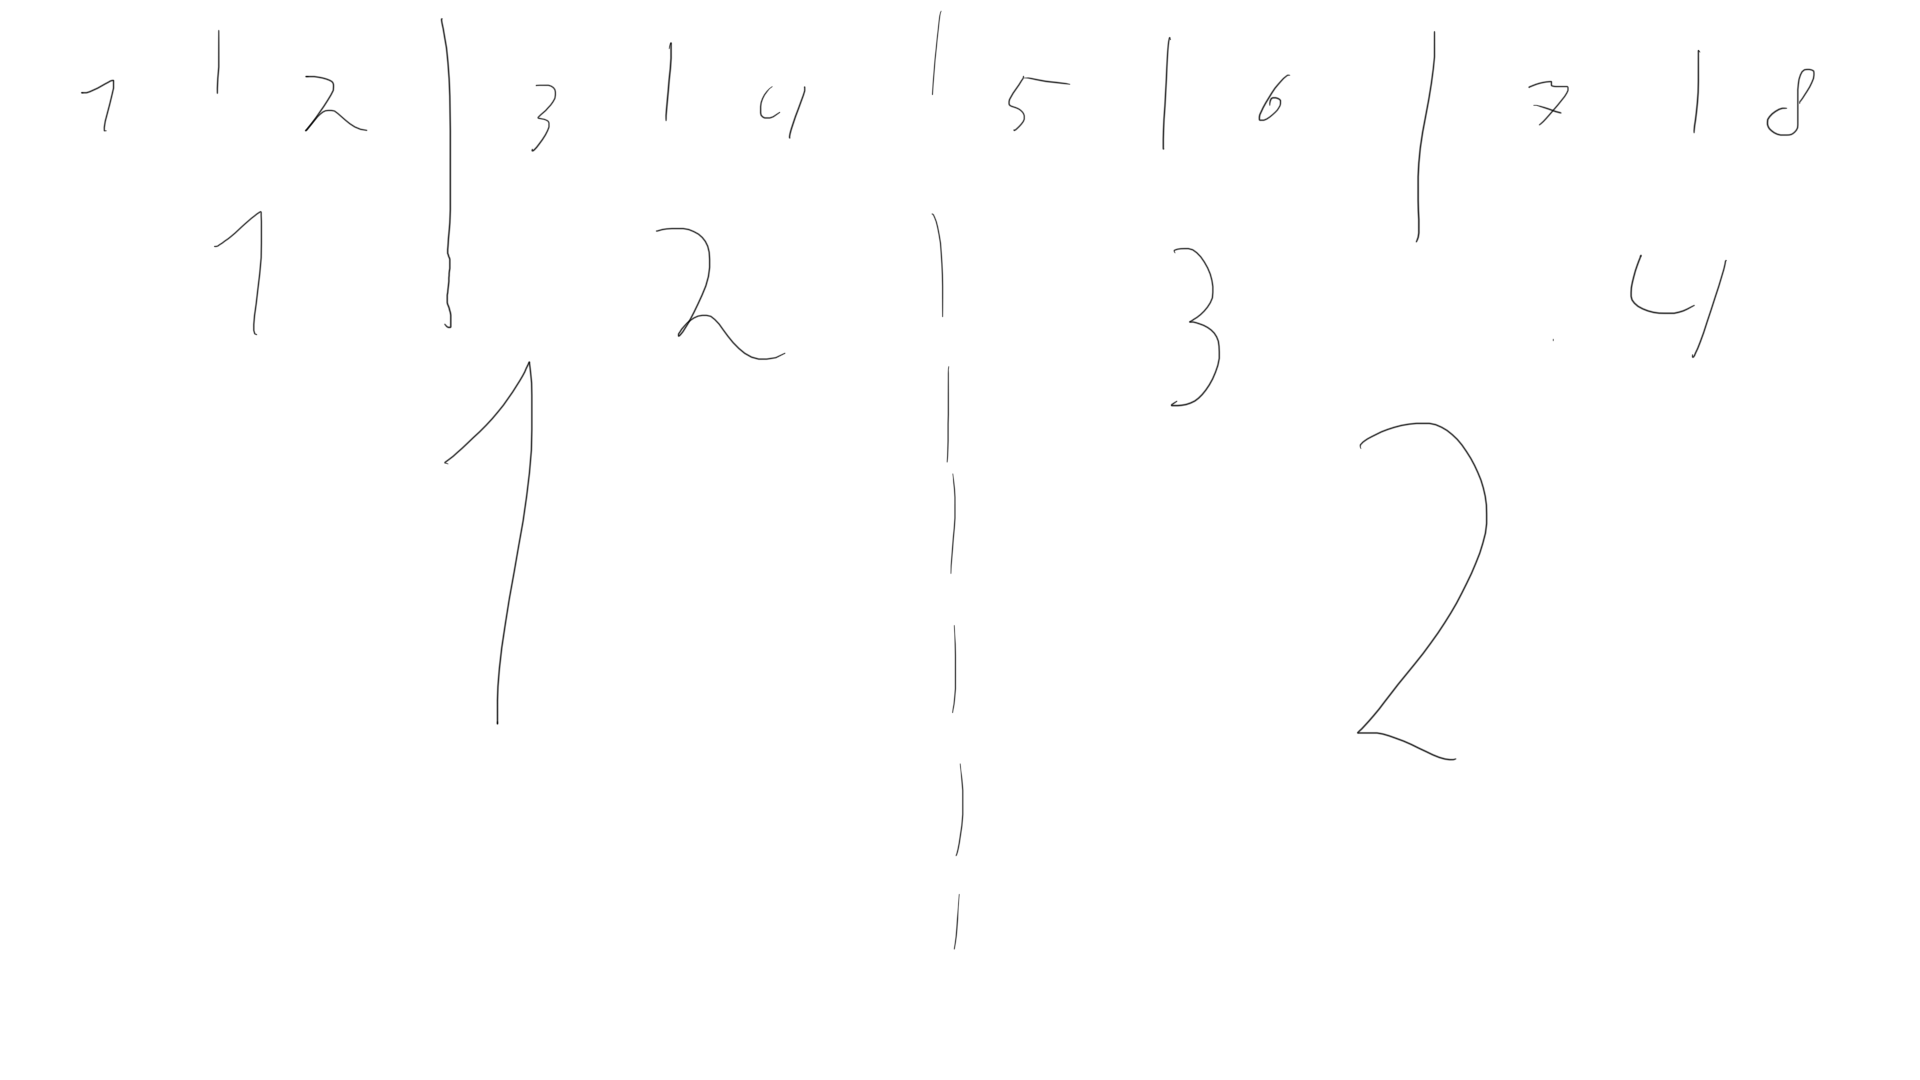 1 | 2 | 3 | 4 | 5 | 6 | 7 | 8
1 | 2 | 3 4
1 | 2